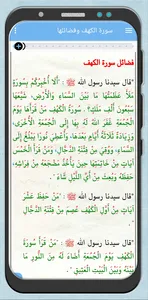 سورة الكهف وفضائلها
فضائل سورة الكهف
قال سيدنا رسول الله ﷺ : "أَلَا أُخْبِرُكُمْ بِسُورَةٍ
مَلَأَ عَظَمَتُهَا مَا بَيْنَ السَّمَاءِ وَالْأَرْضِ، شَيَّعَهَا
سَبْعُونَ أَلْفَ مَلَكٍ؟ سُورَةُ الْكَهْفِ مَنْ قَرَأَهَا يَوْمَ
الْجُمُعَةِ غَفَرَ اللَّهُ لَهُ بِهَا إِلَى الْجُمُعَةِ الْأُخْرَى،
وَزِيَادَةُ ثَلَاثَةِ أَيَّامٍ بَعْدَهَا، وَأُعْطِيَ نُورًا يَبْلُغُ إِلَى
السَّمَاءِ، وَوُقِيَ فِتْنَةَ الدَّجَّالِ، وَمَنْ قَرَأَ الْخَمْسَ
آيَاتٍ مِنْ خَاتِمَتِهَا حِينَ يَأْخُذُ مَضْجَعَهُ مِنْ فِرَاشِهِ،
حُفِظَ وَبُعِثَ مِنْ أَيِّ اللَّيْلِ شَاءَ".
قال سيدنا رسول الله ﷺ : "مَنْ حَفِظَ عَشْرَ
آيَاتٍ مِنْ أَوَّلِ الْكَهْفِ عُصِمَ مِنْ فِتْنَةِ الدَّجَّالِ".
قال سيدنا رسول الله ﷺ : "مَنْ قَرَأَ سُورَةَ
الْكَهْفِ يَوْمَ الْجُمُعَةِ أَضَاءَ لَهُ مِنَ النُّورِ مَا
بَيْنَهُ وَبَيْنَ الْبَيْتِ الْعَتِيقِ"